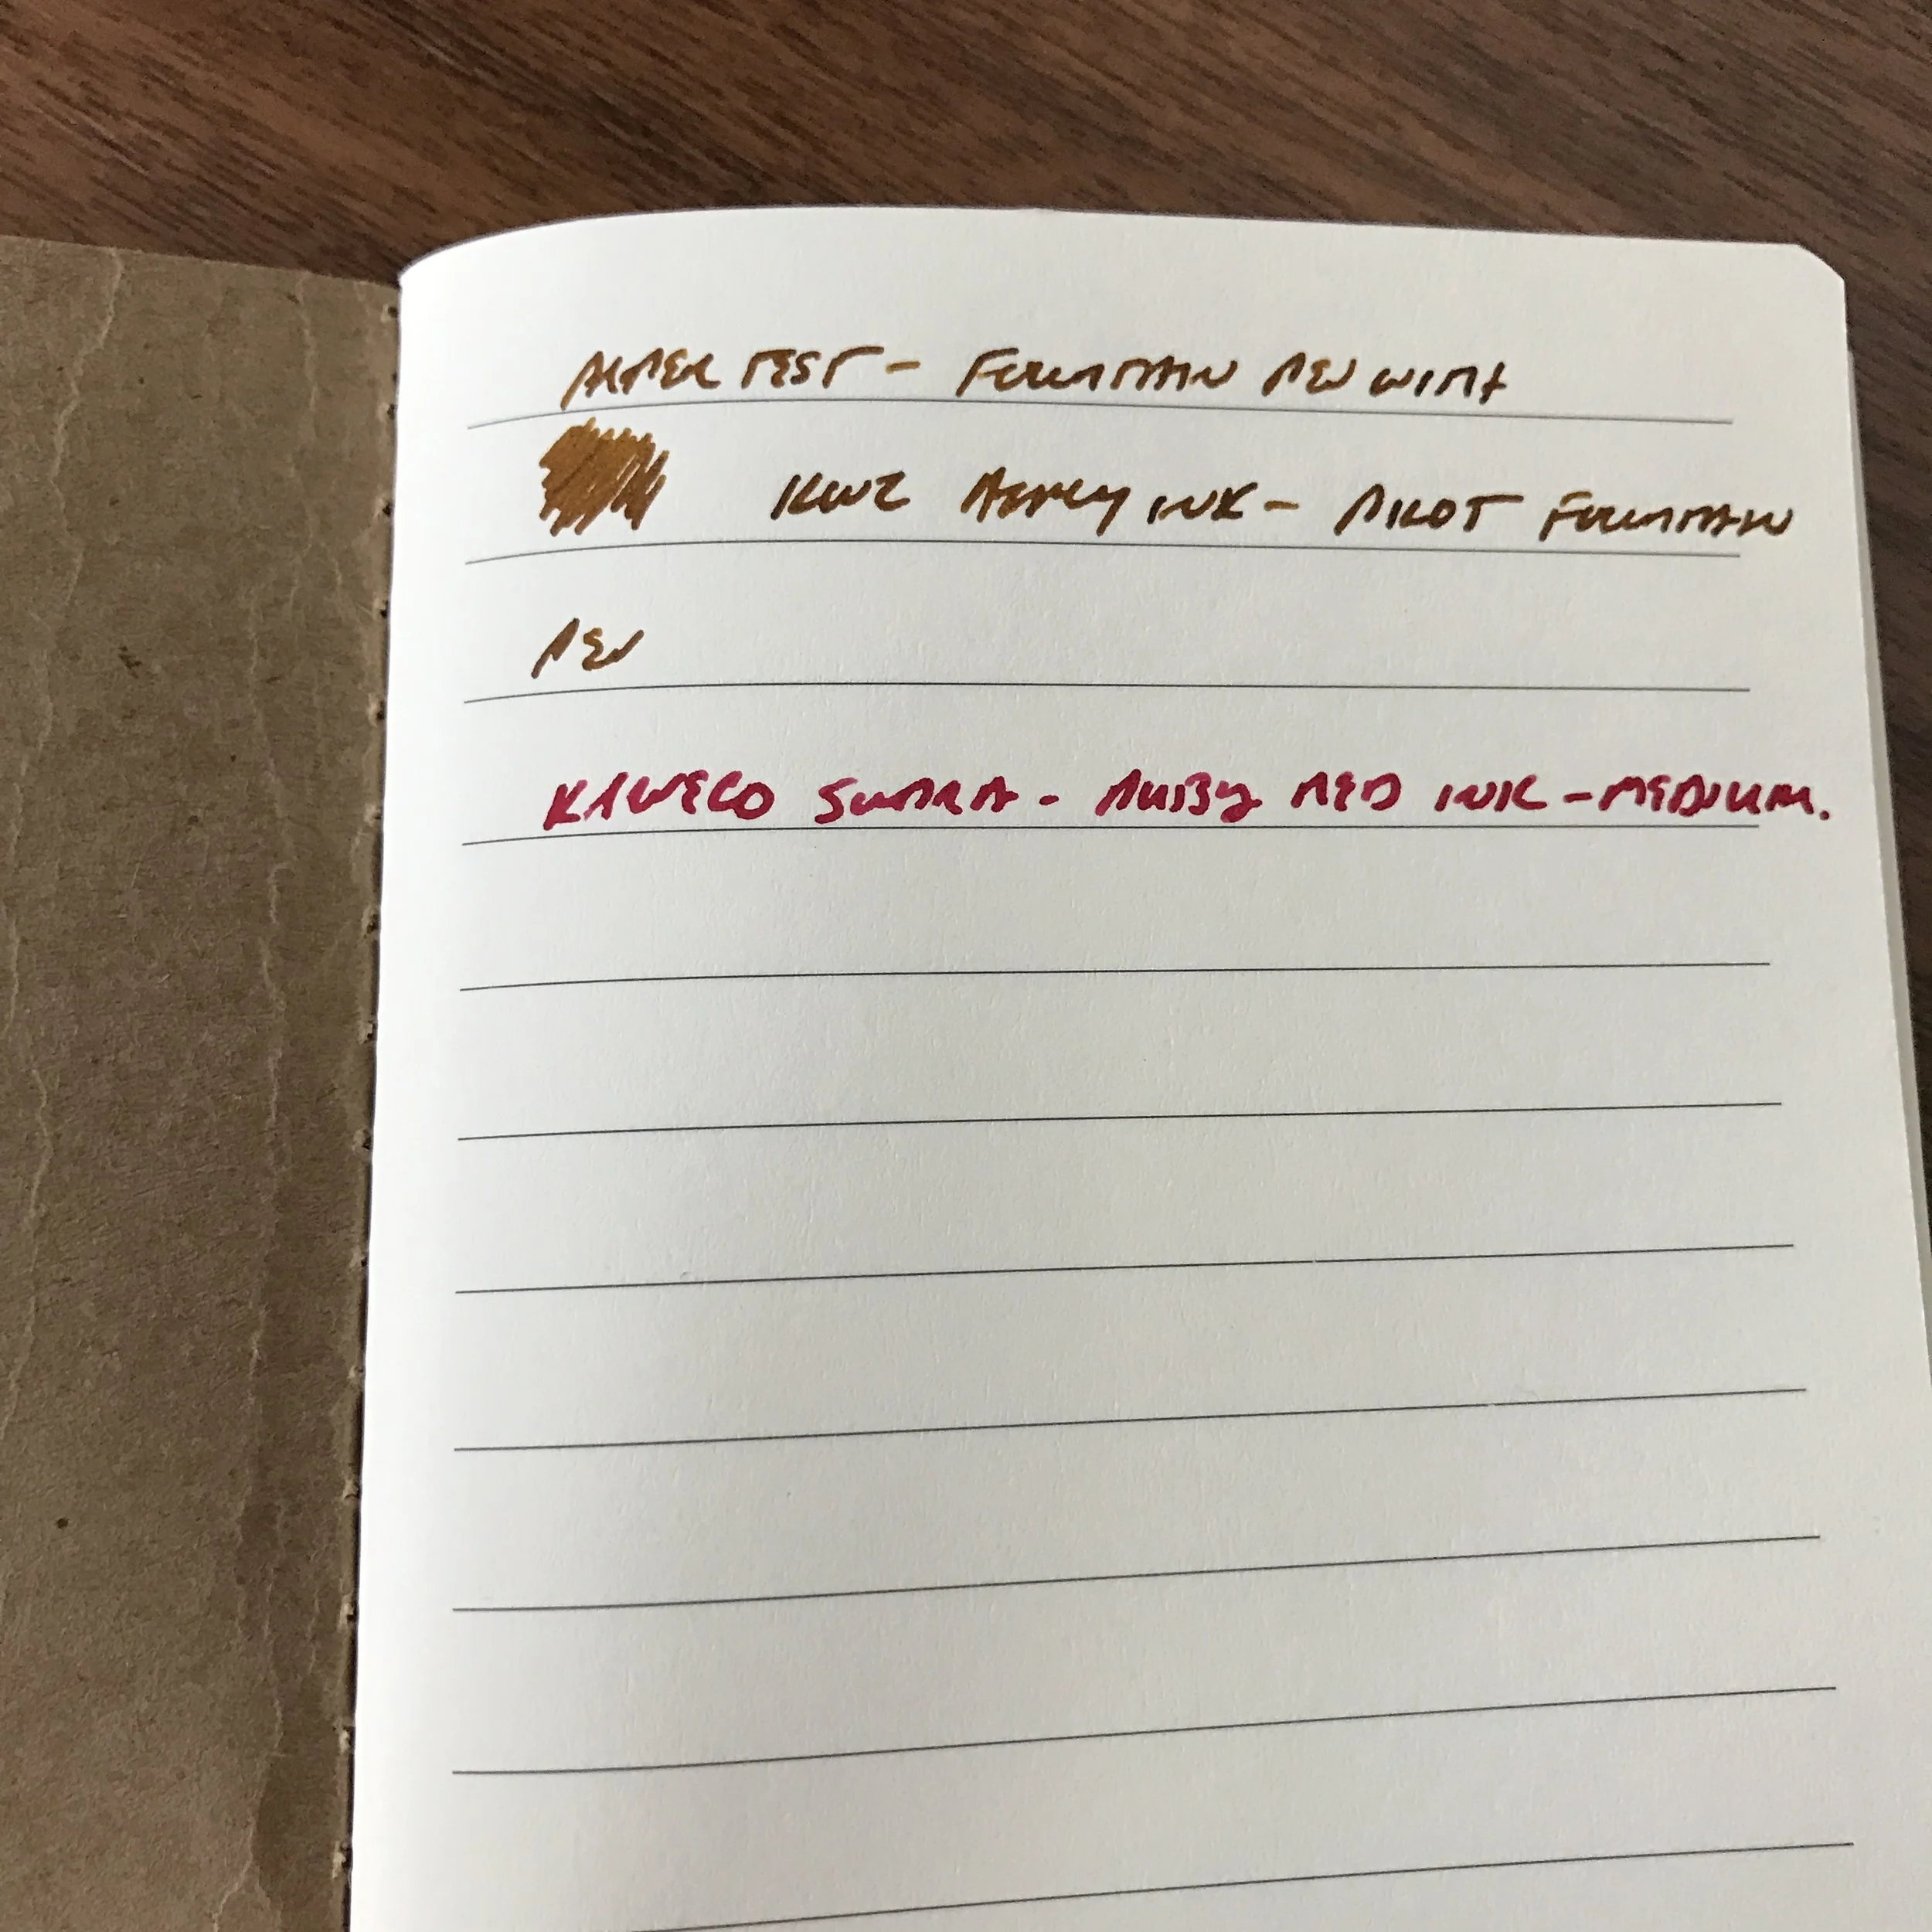 PAPER TEST - FOUNTAIN PEN WITH
KWZ HONEY INK - PILOT FOUNTAIN
PEN
KAWECO SUPRA - RUBY RED INK - MEDIUM.